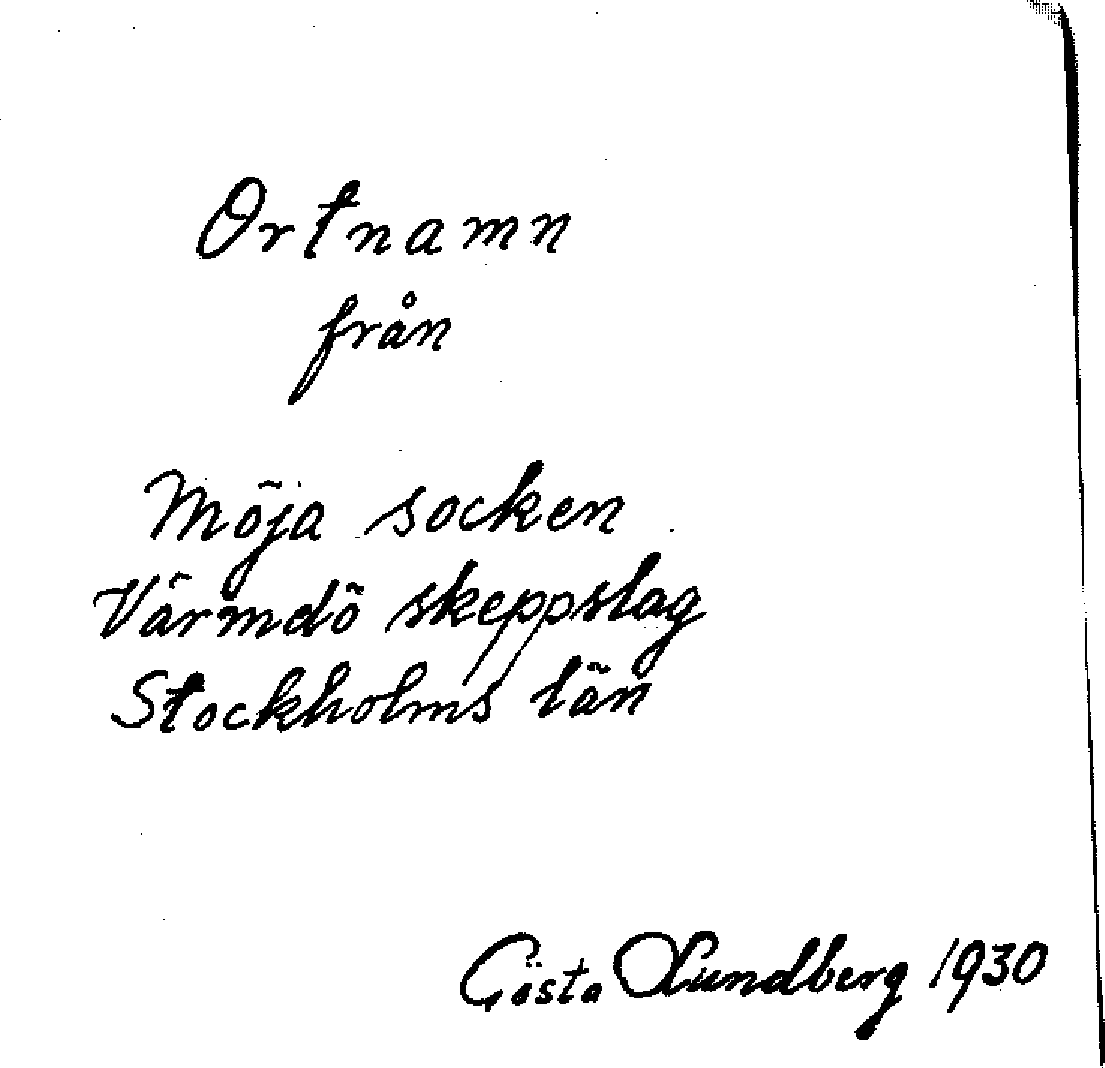 Ortnamn
från
Möja socken
Värmdö skeppslag
Stockholms län
Gösta Lundberg 1930